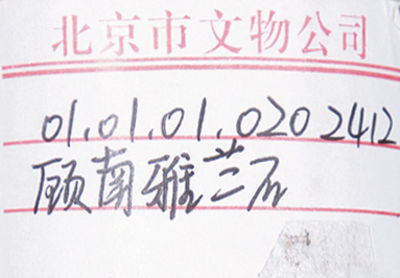 北京市文物公司
01.01.01.0202412
顾南雅兰石